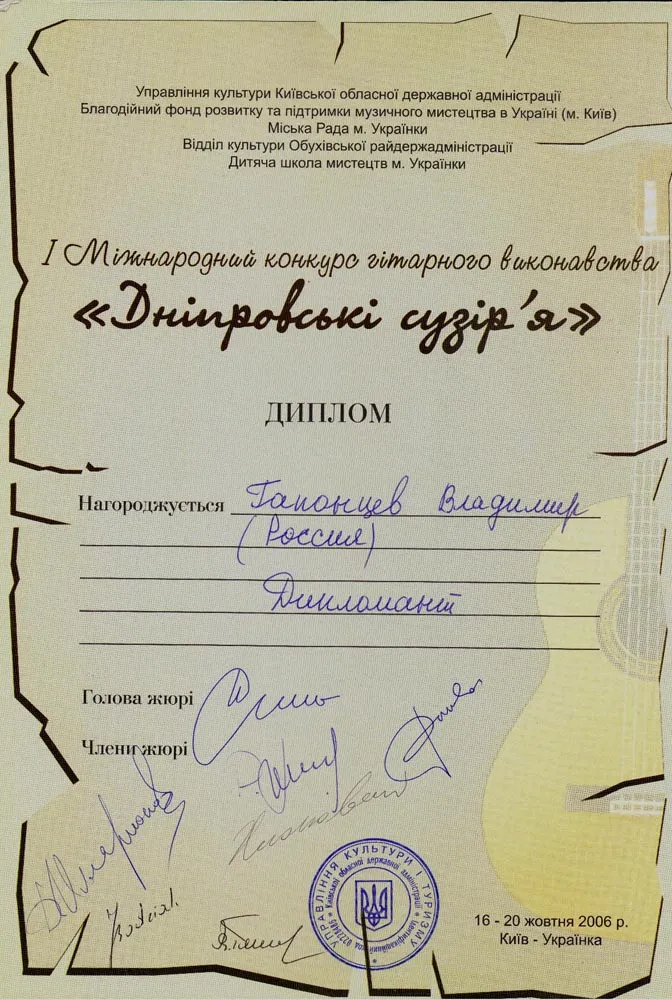 Управління культури Київської обласної державної адміністрації
Благодійний фонд розвитку та підтримки музичного мистецтва в Україні (м. Київ)
Міська Рада м. Українки
Відділ культури Обухівської райдержадміністрації
Дитяча школа мистецтв м. Українки
І Міжнародний конкурс гітарного виконавства
«Дніпровські сузір’я»
ДИПЛОМ
Нагороджується Гапонцев Владимир
(Россия)
Дипломант
Голова жюрі
Члени жюрі
УПРАВЛІННЯ КУЛЬТУРИ І ТУРИЗМУ
Київської обласної державної адміністрації
16 - 20 жовтня 2006 р.
Київ - Українка